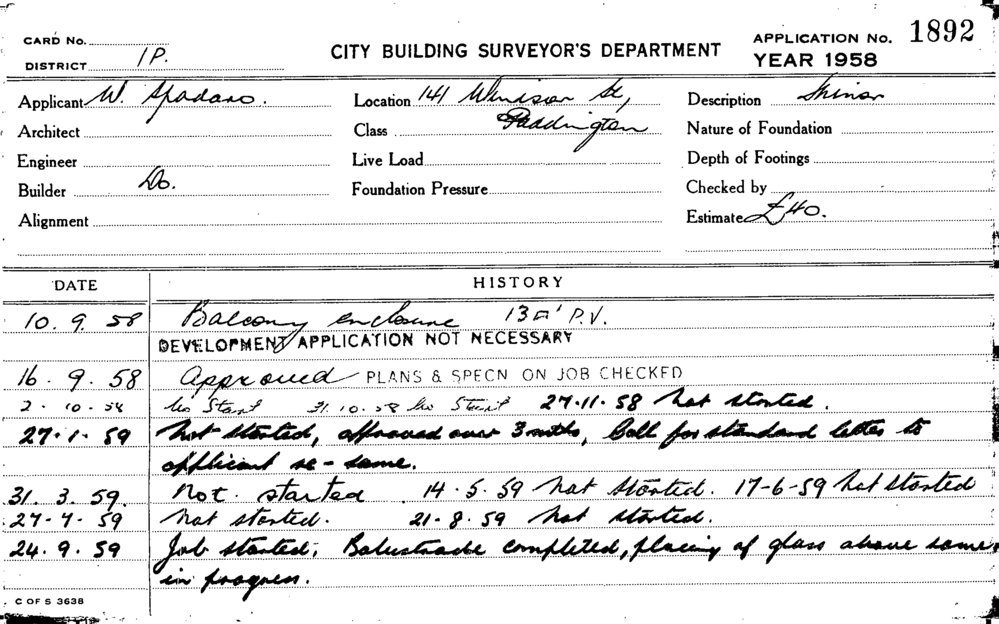 CARD No.
DISTRICT 1P.
CITY BUILDING SURVEYOR'S DEPARTMENT
APPLICATION No. 1892
YEAR 1958
Applicant W. Spadaro.
Location 141 Windsor St,
Paddington
Description Minor
Architect
Class
Nature of Foundation
Engineer
Live Load
Depth of Footings
Builder Do.
Foundation Pressure
Checked by
Alignment
Estimate £40.
DATE HISTORY
10. 9. 58 Balcony enclosure 13□' P.V.
DEVELOPMENT APPLICATION NOT NECESSARY
16. 9. 58 Approved PLANS & SPECN ON JOB CHECKED
2. 10. 58 No Start 31.10.58 No Start 27.11.58 Not started.
27.1.59 Not started, approved over 3 mths, Call for standard letter to
applicant re - same.
31. 3. 59. Not started 14.5.59 Not started. 17-6-59 Not started
27.7.59 Not started. 21.8.59 Not started.
24.9.59 Job started; Balustrade completed, placing of glass above same
in progress.
C OF S 3638